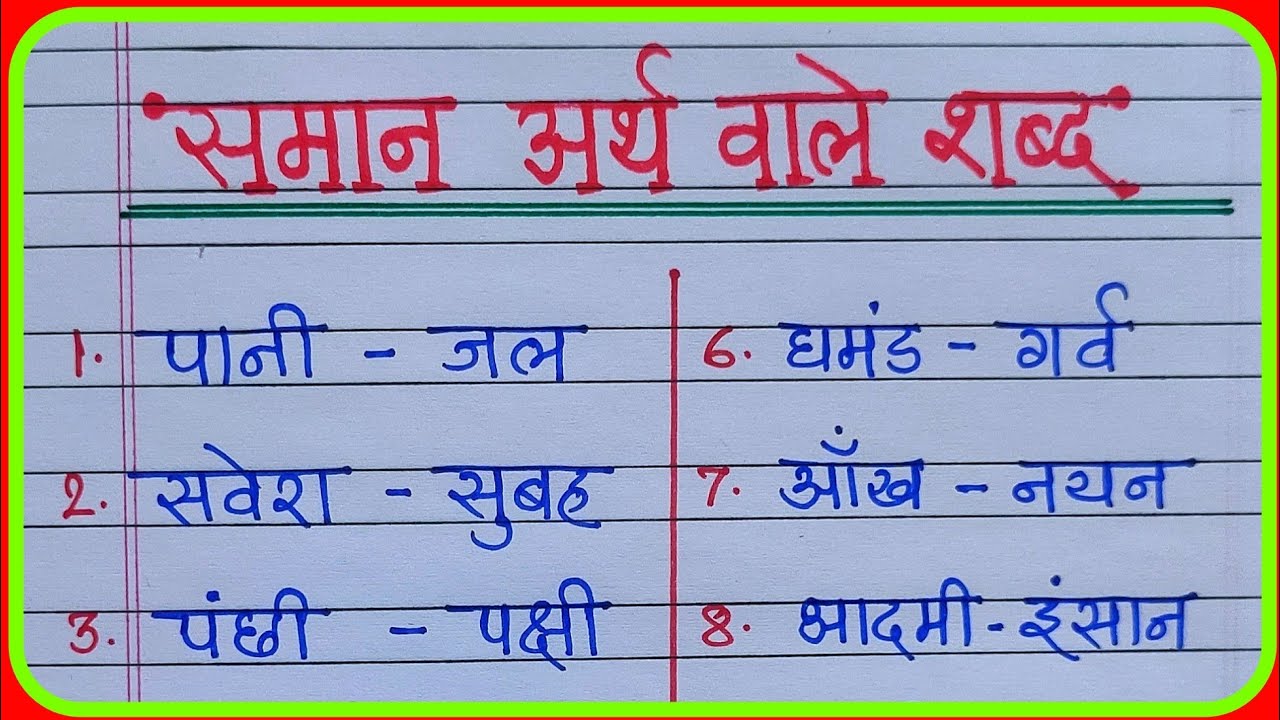 समान अर्थ वाले शब्द
1. पानी - जल
2. सवेरा - सुबह
3. पंछी - पक्षी
6. घमंड - गर्व
7. आँख - नयन
8. आदमी - इंसान